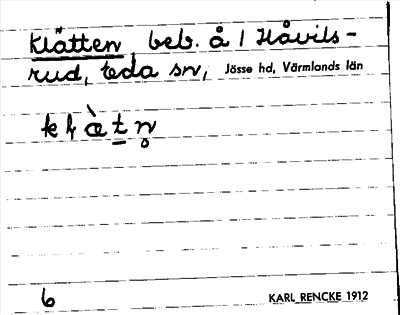 Klätten, beb. å 1 Håvils-
rud, Eda sn, Jösse hd, Värmlands län
6
KARL RENCKE 1912